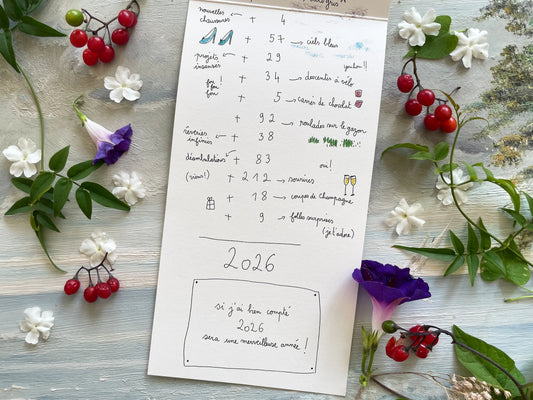 nouvelles
chaussures + 4
+ 57 ciels bleus
projets
insensés + 29
youhou !!
+ 34 descentes à vélo
fou !
fou
fou
+ 5 carrés de chocolat
+ 92 roulades sur le gazon
rêveries
infinies + 38
déambulations + 83
oui !
(vious !) + 212 sourires
+ 18 coupes de champagne
+ 9 folles surprises
(je t'adore)
2026
si j'ai bien compté
2026
sera une merveilleuse année !